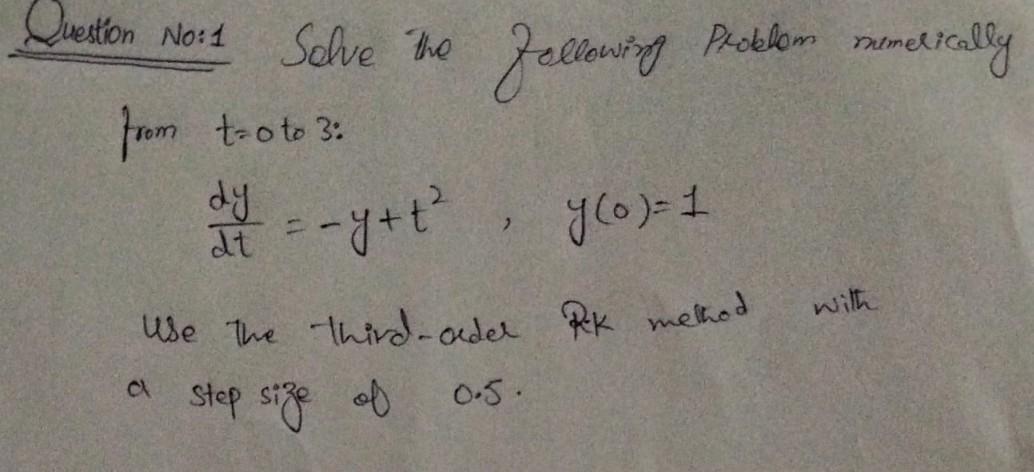 Question No:1 Solve the following Problem numerically
from t=0 to 3:
dy/dt = -y+t² , y(0)=1
Use The third-order RK method with
a step size of 0.5.